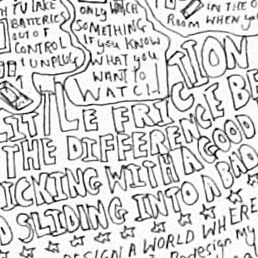 TAKE
BATTERIES
OUT OF
CONTROL
& UNPLUG
ONLY
SOMETHING
IF YOU KNOW
WHAT YOU
WANT TO
WATCH
IN THE O
ROOM WHEN YO
TION
LITTLE FRICE BE
THE DIFFERENCE
ICKING WITH A GOOD
D SLIDING INTO A BAD
DESIGN A WORLD WHERE
Redesign My